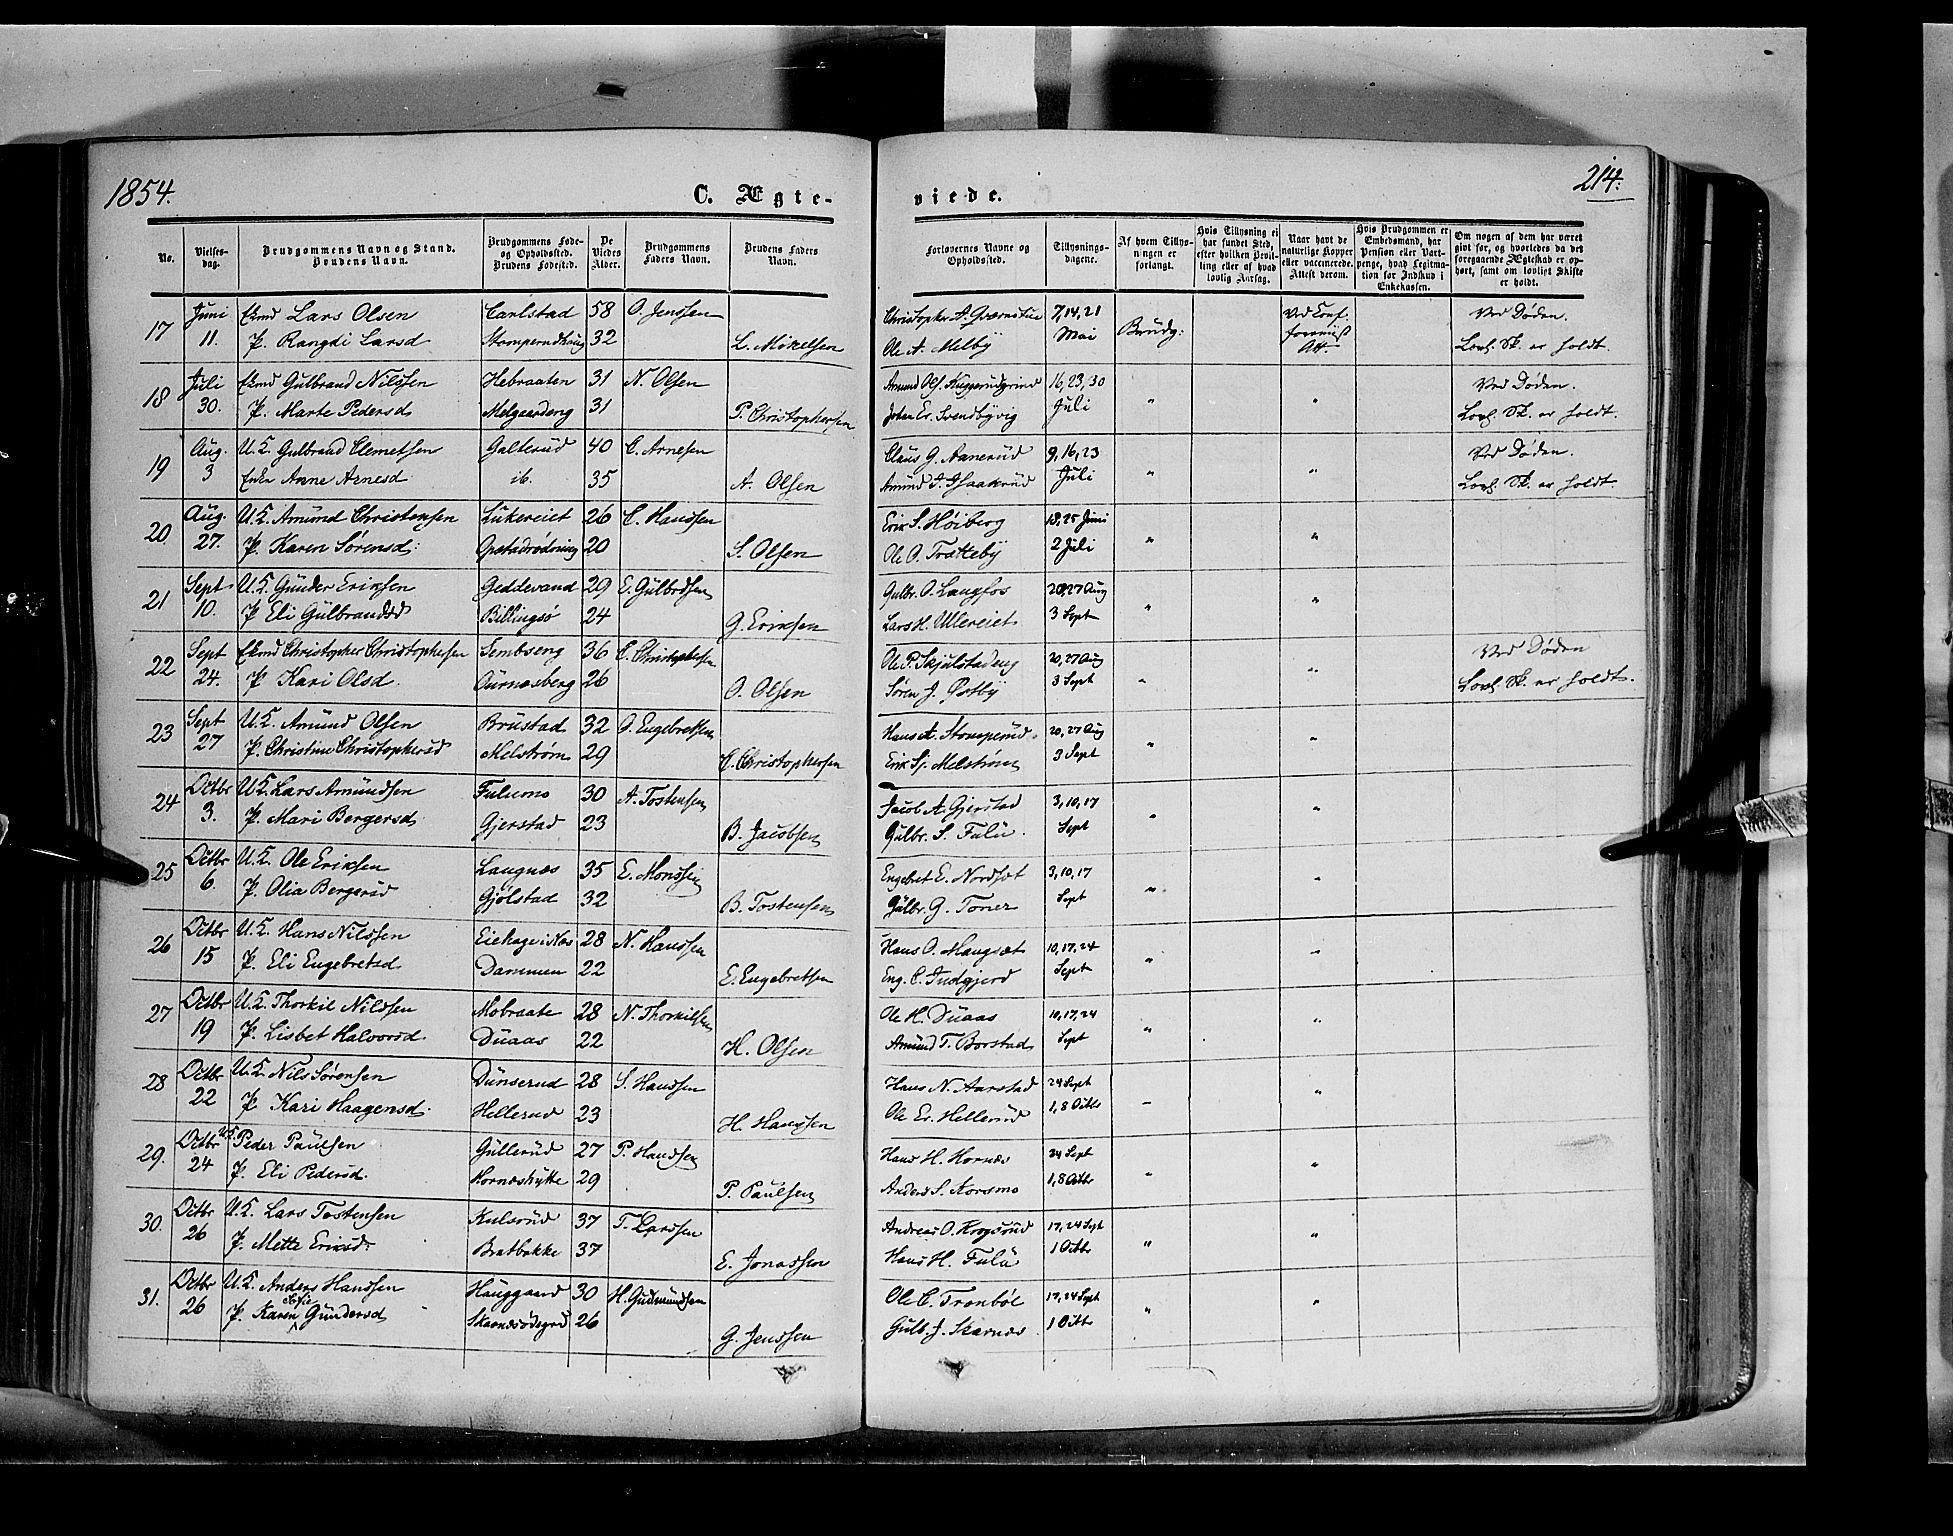 1854.
C. Ægte-
viede.
214.
No.
Vielses-
dag.
Brudgommens Navn og Stand.
Brudens Navn.
Brudgommens Føde-
og Opholdssted.
Brudens Fødested.
De
Viedes
Alder.
Brudgommens
Faders Navn.
Brudens Faders
Navn.
Forlovernes Navne og
Opholdssted.
Tillysnings-
dagene.
Af hvem Tillys-
ningen er
forlangt.
Hvis Tillysning ei
har fundet Sted,
efter hvilken Bevil-
ling eller af hvad
lovlig Aarsag.
Naar havt de
naturlige Kopper
eller vaccinerede.
Attest derom.
Hvis Brudgommen er
Embedsmand, har
Pension eller Vart-
penge, hvad Legitima-
tion for Indskud i
Enkekassen.
Om nogen af dem har været
gift før, og hvorledes da det
foregaaende Ægteskab er op-
hørt, samt om lovligt Skifte
er holdt.
17 Juni Ekmd Lars Olsen Carlstad 58 O. Jenssen Christopher A. 7, 14, 21 Ved Conf. Ved Døden.
11. P. Rangdi Larsd 32 L. Mikelsen Ole A. Melby Mai Brudg: Att. Lovl. Sk. er holdt.
18 Juli Ekmd Gulbrand Nilssen Hebraaten 31 N. Olsen Amund Ols. Kuggerudgrind 16, 23, 30 " Ved Døden.
30. P. Marte Pedersd Melgaardeng 31 P. Christophersen Johan Er. Svendbyvig Juli " Lovl. Sk. er holdt.
19 Aug. U.K. Gulbrand Clemetsen Galterud 40 C. Arnesen Claus G. Aanerud 9, 16, 23 " Ved Døden.
3 Enke Anne Arnesd ib. 35 A. Olsen Amund Juli " Lovl. Sk. er holdt.
20 Aug. U.K. Amund Christensen Lukereiet 26 C. Hanssen Erik S. Høiberg 18, 25 Juni "
27. P. Karen Sørensd: Opstadrødning 20 S. Olsen Ole O. Trøtteby 2 Juli "
21 Sept U.K. Gunder Eriksen Geddevand 29 E. Gulbrdsen Gulbr. O. Langfos 20, 27 Aug "
10. P Eli Gulbrandsd Billingsø 24 G. Eriksen Lars H. Ullereiet 3 Sept "
22 Sept Ekmd Christopher Christophersen Sembseng 36 C. Christophersen Ole P. Skjulstadeng 20, 27 Aug " Ved Døden
24. P Kari Olsd. Aurnæsberg 26 O. Olsen Søren J. Østby 3 Sept " Lovl. Sk. er holdt.
23 Sept U.K. Amund Olsen Brustad 32 O. Engebretsen Hans A. Stomperud 20, 27 Aug "
27 P. Christine Christophersd Melstrøm 29 C. Christophersen Erik Sj. Melstrøm 3 Sept "
24 Octbr U.K. Lars Amundsen Fulumo 30 A. Tostensen Jacob A. Gjerstad 3, 10, 17 "
3. P. Mari Bergersd Gjerstad 23 B. Jacobsen Gulbr. S. Fulu. Sept "
25 Octbr U.K. Ole Eriksen Langnæs 35 E. Monssen Engebret E. Nordset 3, 10, 17 "
6 P. Olia Bergersd Gjølstad 32 B. Tostensen Gulbr. G. Toner Sept "
26 Octbr U.K. Hans Nilssen Eiehage i Næs 28 N. Hanssen Hans O. Haugsæt 10, 17, 24 "
15 P. Eli Engebretsd Dammen 22 E. Engebretsen Eng. C. Indgjerd Sept "
27 Octbr U.K. Thorkil Nilssen Mobraate 28 N. Thorkilsen Ole H. Duaas 10, 17, 24 "
19 P. Lisbet Halvorsd Duaas 22 H. Olsen Amund T. Borstad Sept "
28 Octbr U.K. Nils Sørensen Dunserud 28 S. Hanssen Hans N. Aarstad 24 Sept "
22 P Kari Haagensd. Hellerud 23 H. Hanssen Ole Er. Hellerud 1, 8 Octbr "
29. Octbr U.K. Peder Paulsen Gullerud 27 P. Hanssen Hans H. Hornæs 24 Sept "
24 P. Eli Pedersd. Hornæshytte 29 P. Paulsen Anders S. Korsmo 1, 8 Octbr "
30. Octbr U.K. Lars Tostensen Kulsrud 37 T. Larssen Andreas O. Krogsrud 17, 24 Sept "
26 P. Mette Eriksd. Bratbakke 37 E. Jonassen Hans H. Fulu 1 Octbr "
31. Octbr U.K. Anders Hanssen Hauggaard 30 H. Gudmundsen Ole C. Tronbøl 17, 24 Sept "
26 P. Karen Sofie Gundersd Skarnæsødegrd 26 G. Jenssen Gulb. J. Skarnæs 1 Octbr "